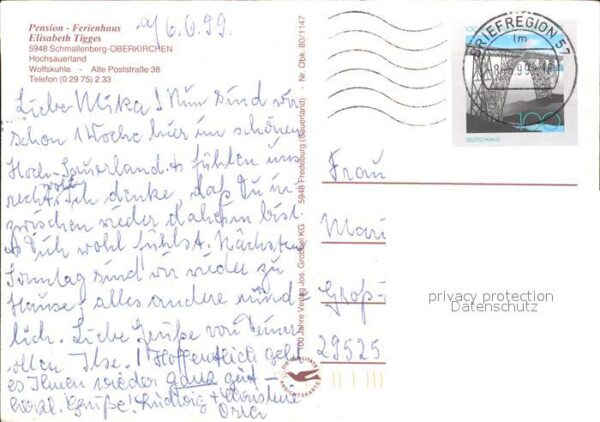 Pension - Ferienhaus
Elisabeth Tigges
5948 Schmallenberg-OBERKIRCHEN
Hochsauerland
Wolfskuhle - Alte Poststraße 38
Telefon (0 29 75) 2 33
6.6.99.
Liebe Mika! Nun sind wir
schon 1 Woche hier im schönen
Hoch-Sauerland + fühlen uns
recht wohl. Ich denke, daß Du in-
zwischen wieder daheim bist
+ Dich wohl fühlst. Nächsten
Sonntag sind wir wieder zu
Hause, alles andere münd-
lich. Liebe Grüße von Deiner
Ilse. ! Hoffentlich geht
es Ihnen wieder ganz gut –
Grüße! Ludwig +
100 Jahre Verlag Jos. Grobbel KG 5948 Fredeburg (Sauerland) · Nr. Obk. 80/1147
BRIEFREGION 57
100
DEUTSCHLAND
Frau
Mari
Groß-
29525
privacy protection
Datenschutz